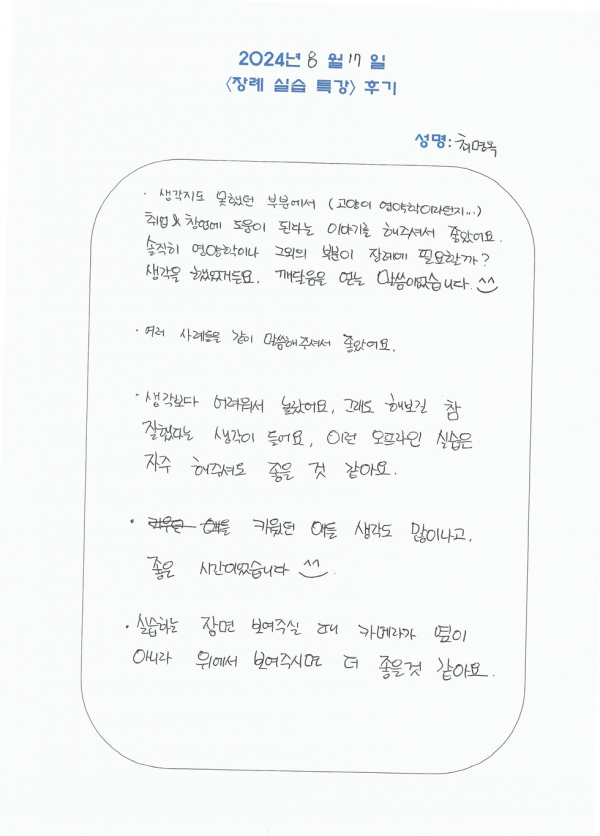 2024년 8월 17일
<장례 실습 특강> 후기
성명: 최명옥
· 생각지도 못했던 부분에서 (고양이 영양학이라던지...)
취업&창업에 도움이 된다는 이야기를 해주셔서 좋았어요.
솔직히 영양학이나 그외의 부분이 장례에 필요할까?
생각을 했었거든요. 깨달음을 얻는 말씀이었습니다. ^^
· 여러 사례들을 같이 말씀해주셔서 좋았어요.
· 생각보다 어려워서 놀랐어요, 그래도 해보길 참
잘했다는 생각이 들어요, 이런 오프라인 실습은
자주 해주셔도 좋을 것 같아요.
· 키웠던 애들 생각도 많이나고,
좋은 시간이었습니다 ^^.
· 실습하는 장면 보여주실 때 카메라가 옆이
아니라 위에서 보여주시면 더 좋을것 같아요.